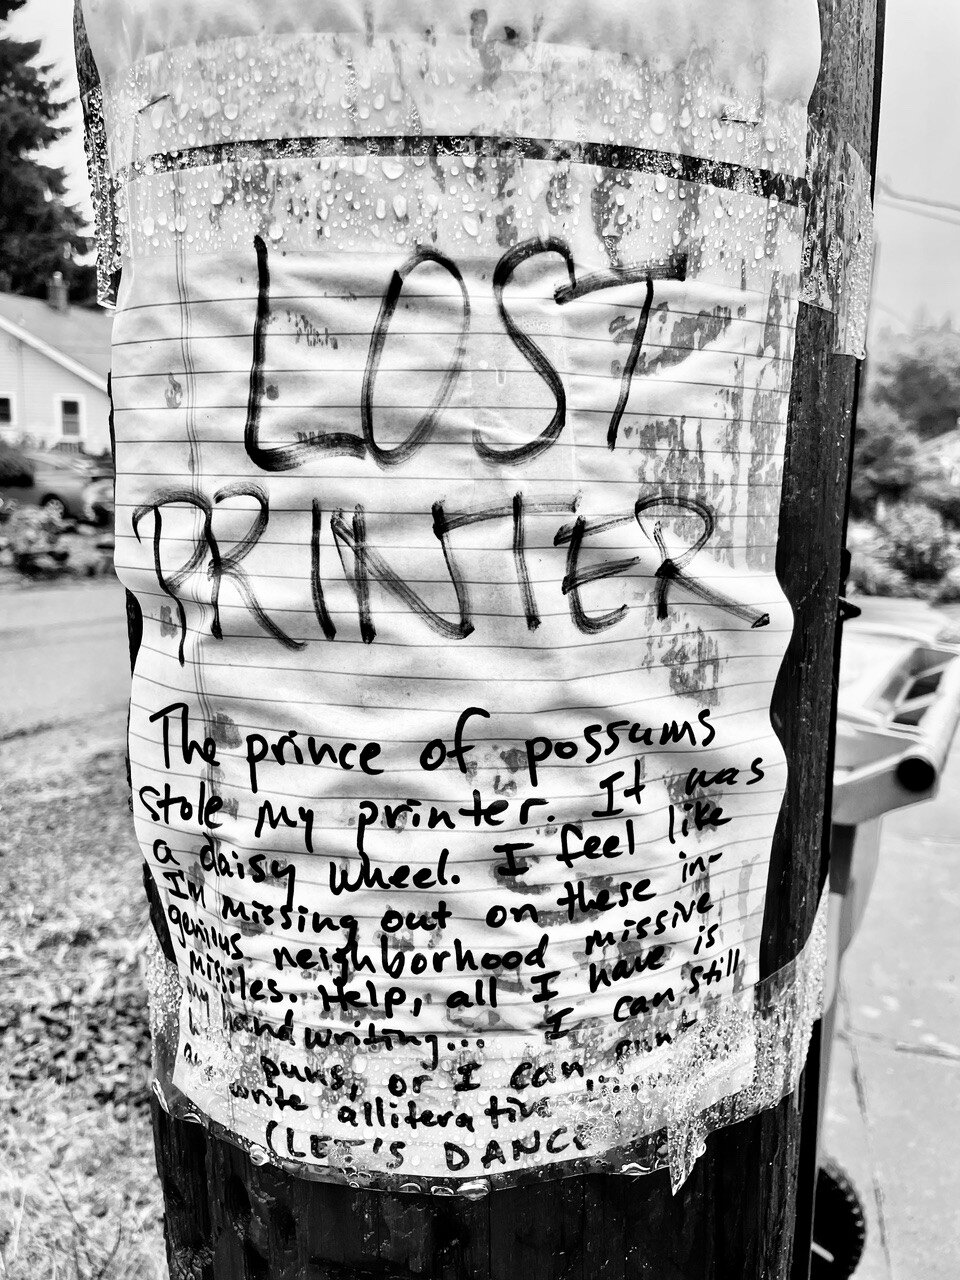 LOST
PRINTER
The prince of possums
stole my printer. It was
a daisy wheel. I feel like
I'm missing out on these in-
genious neighborhood missive
missiles. Help, all I have is
my handwriting... I can still
puns, or I can
write alliterative
(LET'S DANCE